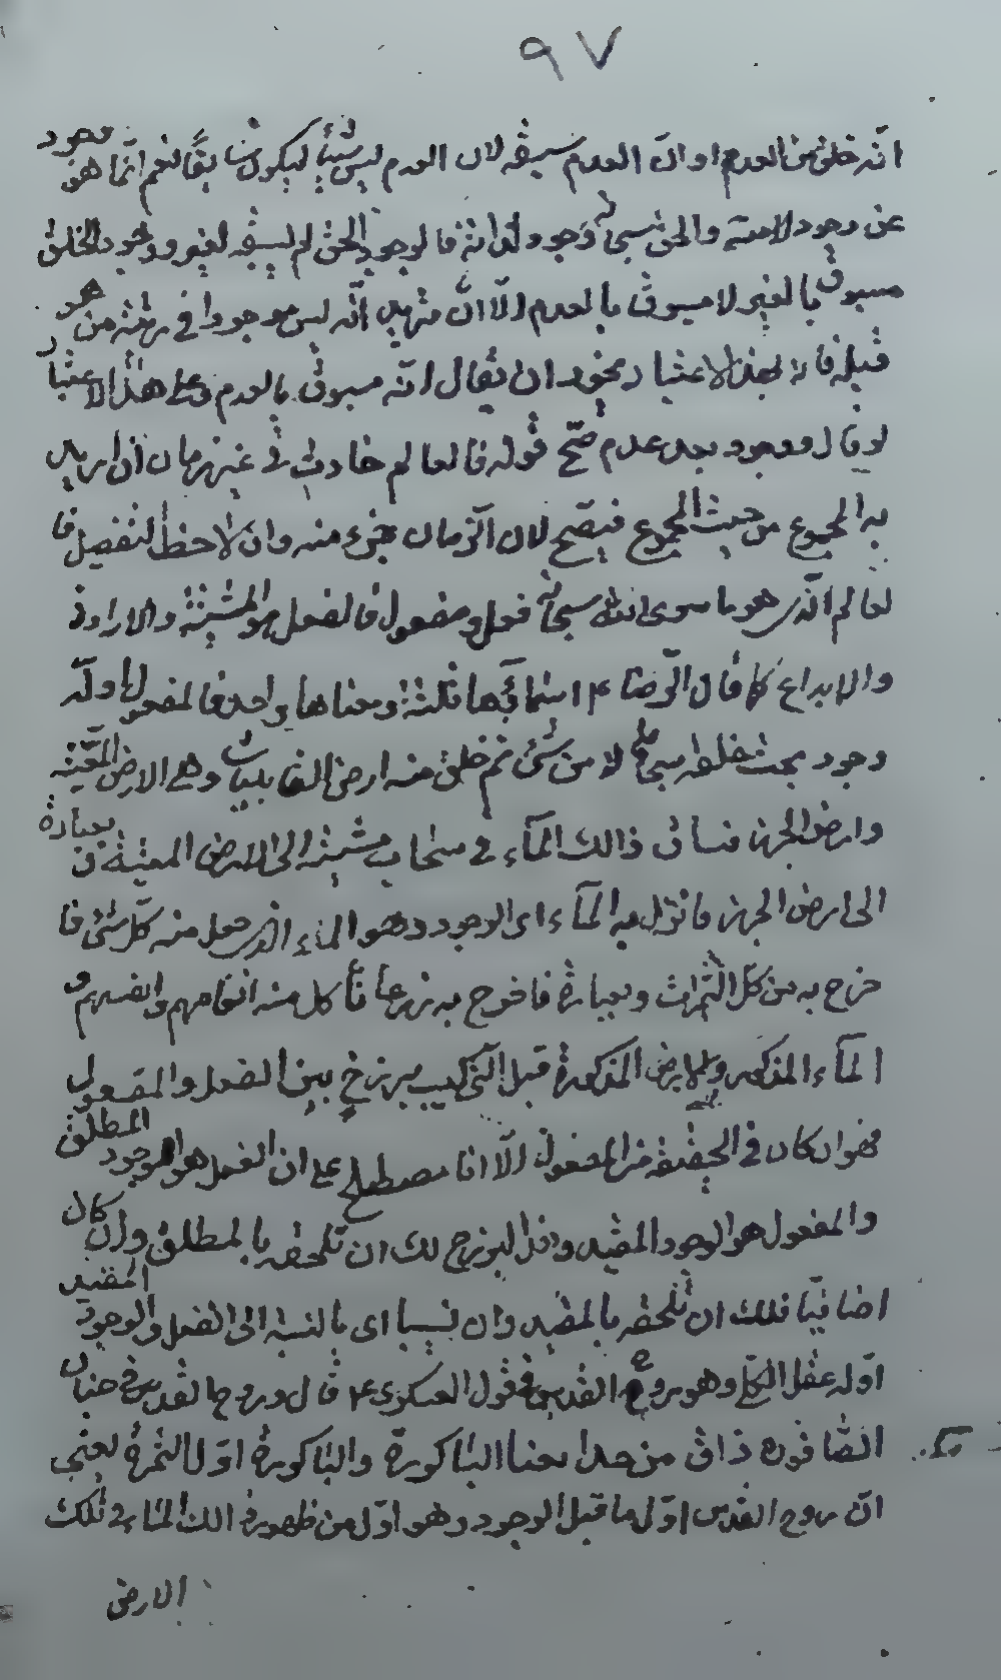 ٩٧
انّه خلق من العدم او ان العدم سبقه لان العدم ليس شيئاً ليكون سابقاً نعم انّما هو موجود
عن وجود لا منه والحق سبحانه وجود لذاته فالوجود الحق لم يسبقه لغيره ووجود الخلق
مسبوق بالغير لا مسبوق بالعدم الّا ان تريد انّه ليس موجودا في رتبته من هو
قبله فانه بهذا الاعتبار يجوز ان يقال انّه مسبوق بالعدم وعلى هذا الاعتبار
لو قال موجود بعد عدم صحّ قوله فالعالم حادث في غير زمان ان اريد
به المجموع من حيث المجموع فيصح لان الزمان جزء منه وان لاحظ التفصيل فا
لعالم الّذي هو ما سوى الله سبحانه فعل ومفعول فالفعل هو المشيئة والارادة
والابداع كما قال الرّضا ع اسمائها ثلثة ومعناها واحد فالمفعول اوله
وجود بحت خلقه سبحانه لا من شئ ثم خلق منه ارض القابليات وهى الارض الميّتة
وارض الجرز فساق ذالك المآء في سحاب مشيته الى الارض الميتة وبعبارة
الى ارض الجرز فانزل به المآء اى الوجود وهو المآء الذى جعل منه كلّ شئ فا
خرج به من كلّ الثمرات وبعبارة فاخرج به زرعا تأكل منه انعامهم وانفسهم و
المآء المذكور والارض المذكورة قبل التركيب برزخ بين الفعل والمفعول
فهو ان كان في الحقيقة من المفعول الّا انا نصطلح على ان الفعل هو الوجود المطلق
والمفعول هو الوجود المقيد وهذا البرزخ لك ان تلحقه بالمطلق وان كان
اضافيّا فلك ان تلحقه بالمقيد وان نسبيا اى بالنسبة الى الفعل والوجود المقيد
اوّله عقل الكل وهو روح القدس في قول العسكرى ع قال وروح القدس في جنان
الصّاقورة ذاق من حدائقنا الباكورة والباكورة اوّل الثمرة يعنى
انّ روح القدس اوّل ما قبل الوجود وهو اوّل من ظهور ذالك المآء في تلك
الارض